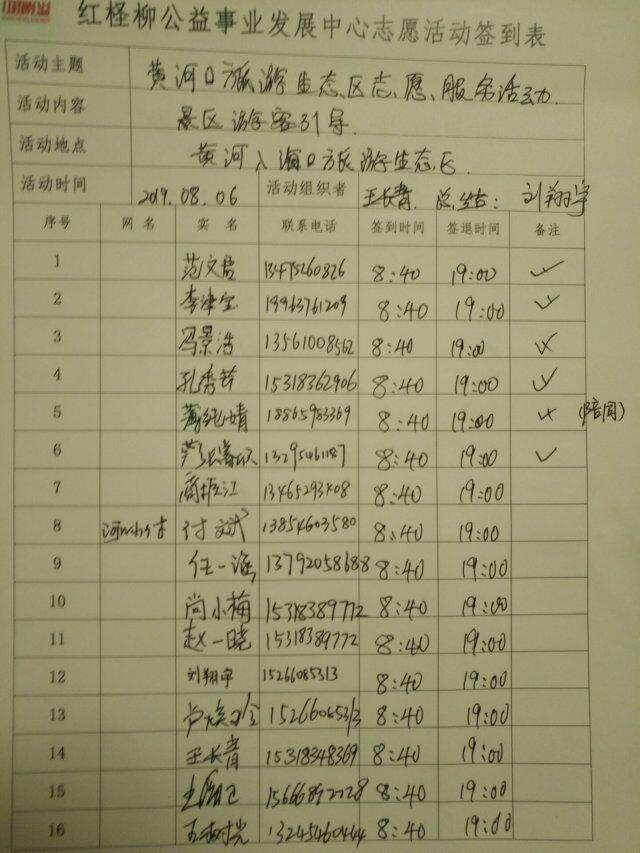 红柽柳公益事业发展中心志愿活动签到表
活动主题 黄河口旅游生态区志愿服务活动.
活动内容 景区游客引导.
活动地点 黄河入海口旅游生态区.
活动时间 2019.08.06 活动组织者 王长青. 总结: 刘翔宇
序号 网 名 实 名 联系电话 签到时间 签退时间 备注
1 范文君 13475260826 8:40 19:00 ✓
2 李津宝 19963761209 8:40 19:00 ✓
3 冯景浩 13561008562 8:40 19:00 ×
4 孔秀芹 15318362906 8:40 19:00 ✓
5 纯婧 18865983369 8:40 19:00 × (陪同)
6 13295461187 8:40 19:00 ✓
7 商振江 13465293408 8:40 19:00
8 付斌 13854603580 8:40 19:00
9 任一涵 13792058688 8:40 19:00
10 尚小梅 15318389772 8:40 19:00
11 赵一晓 15318389772 8:40 19:00
12 刘翔宇 15266085313 8:40 19:00
13 15266085313 8:40 19:00
14 王长青 15318348369 8:40 19:00
15 15666892728 8:40 19:00
16 13245460444 8:40 19:00